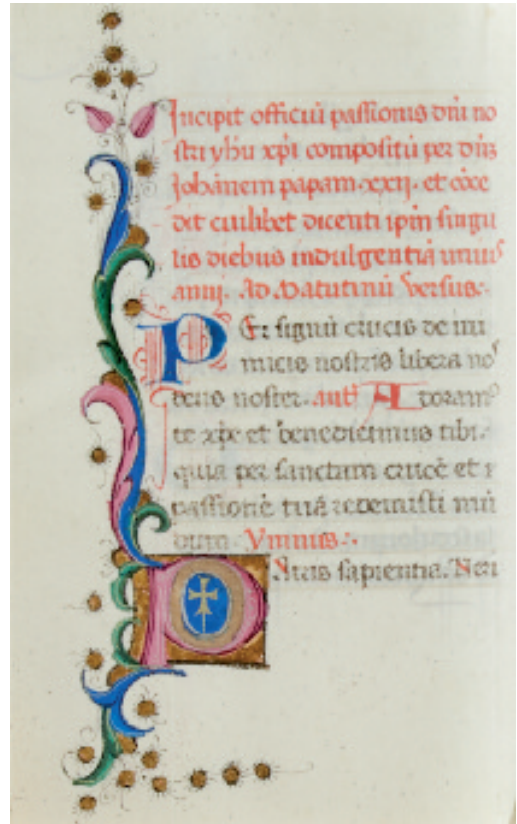 Incipit officiū passionis dn̄i no
stri yhu xp̄i compositū per dn̄z
Johānem papam .xxij. et cōce
dit cuilibet dicenti ip̄m singu
lis diebus indulgentiā unius
anni. Ad Matutinū Versus.
PEr signū crucis de ini
micis nostris libera nos
deus noster. ant̄ Adoramꝰ
te xp̄e et benedicimus tibi.
quia per sanctam crucē et
passionē tuā redemisti mū
dum. Ymnus.
PAtris sapientia. Veri